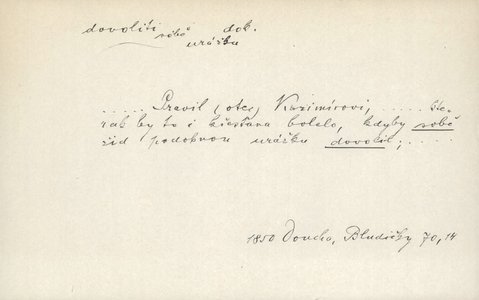 dovoliti sobě dok.
urážku
..... Pravil (otec) Kazimírovi, ..... kte-
rak by to i křesťana bolelo, kdyby sobě
žid podobnou urážku dovolil; .....
1850 Doucha, Bludičky 70, 14